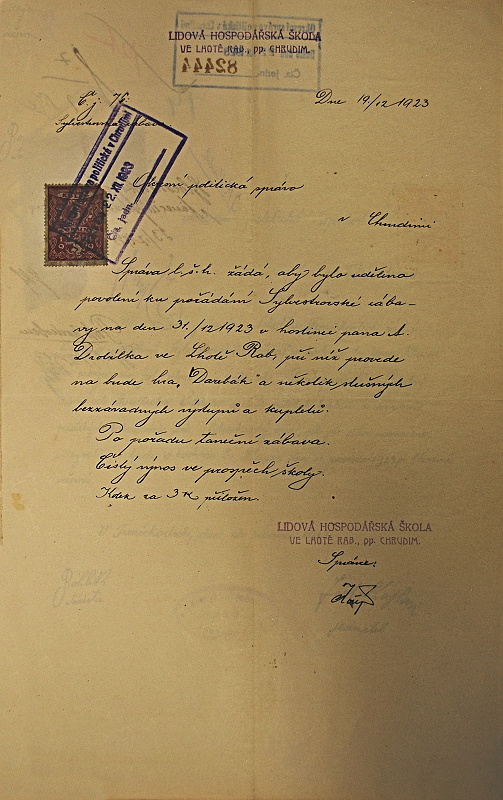 LIDOVÁ HOSPODÁŘSKÁ ŠKOLA
VE LHOTĚ RAB., pp. CHRUDIM.
82444
Čís. jedn.
Č. j. 76.
Dne 19/12 1923
Sylvestrovská zábava
politické v Chrudimi
2. XII. 1923
Čís. jedn.
Okresní politická správo
v Chrudimi
Správa l. š. h. žádá, aby bylo uděleno
povolení ku pořádání Sylvestrovské zába-
vy na den 31./12 1923 v hostinci pana A.
Drobílka ve Lhotě Rab, při níž provede
na bude hra, "Darebák" a několik slušných
bezzávadných výstupů a kupletů.
Po pořadu taneční zábava.
Čistý výnos ve prospěch školy.
Kolek za 3 K přiložen.
LIDOVÁ HOSPODÁŘSKÁ ŠKOLA
VE LHOTĚ RAB., pp. CHRUDIM.
Správce: